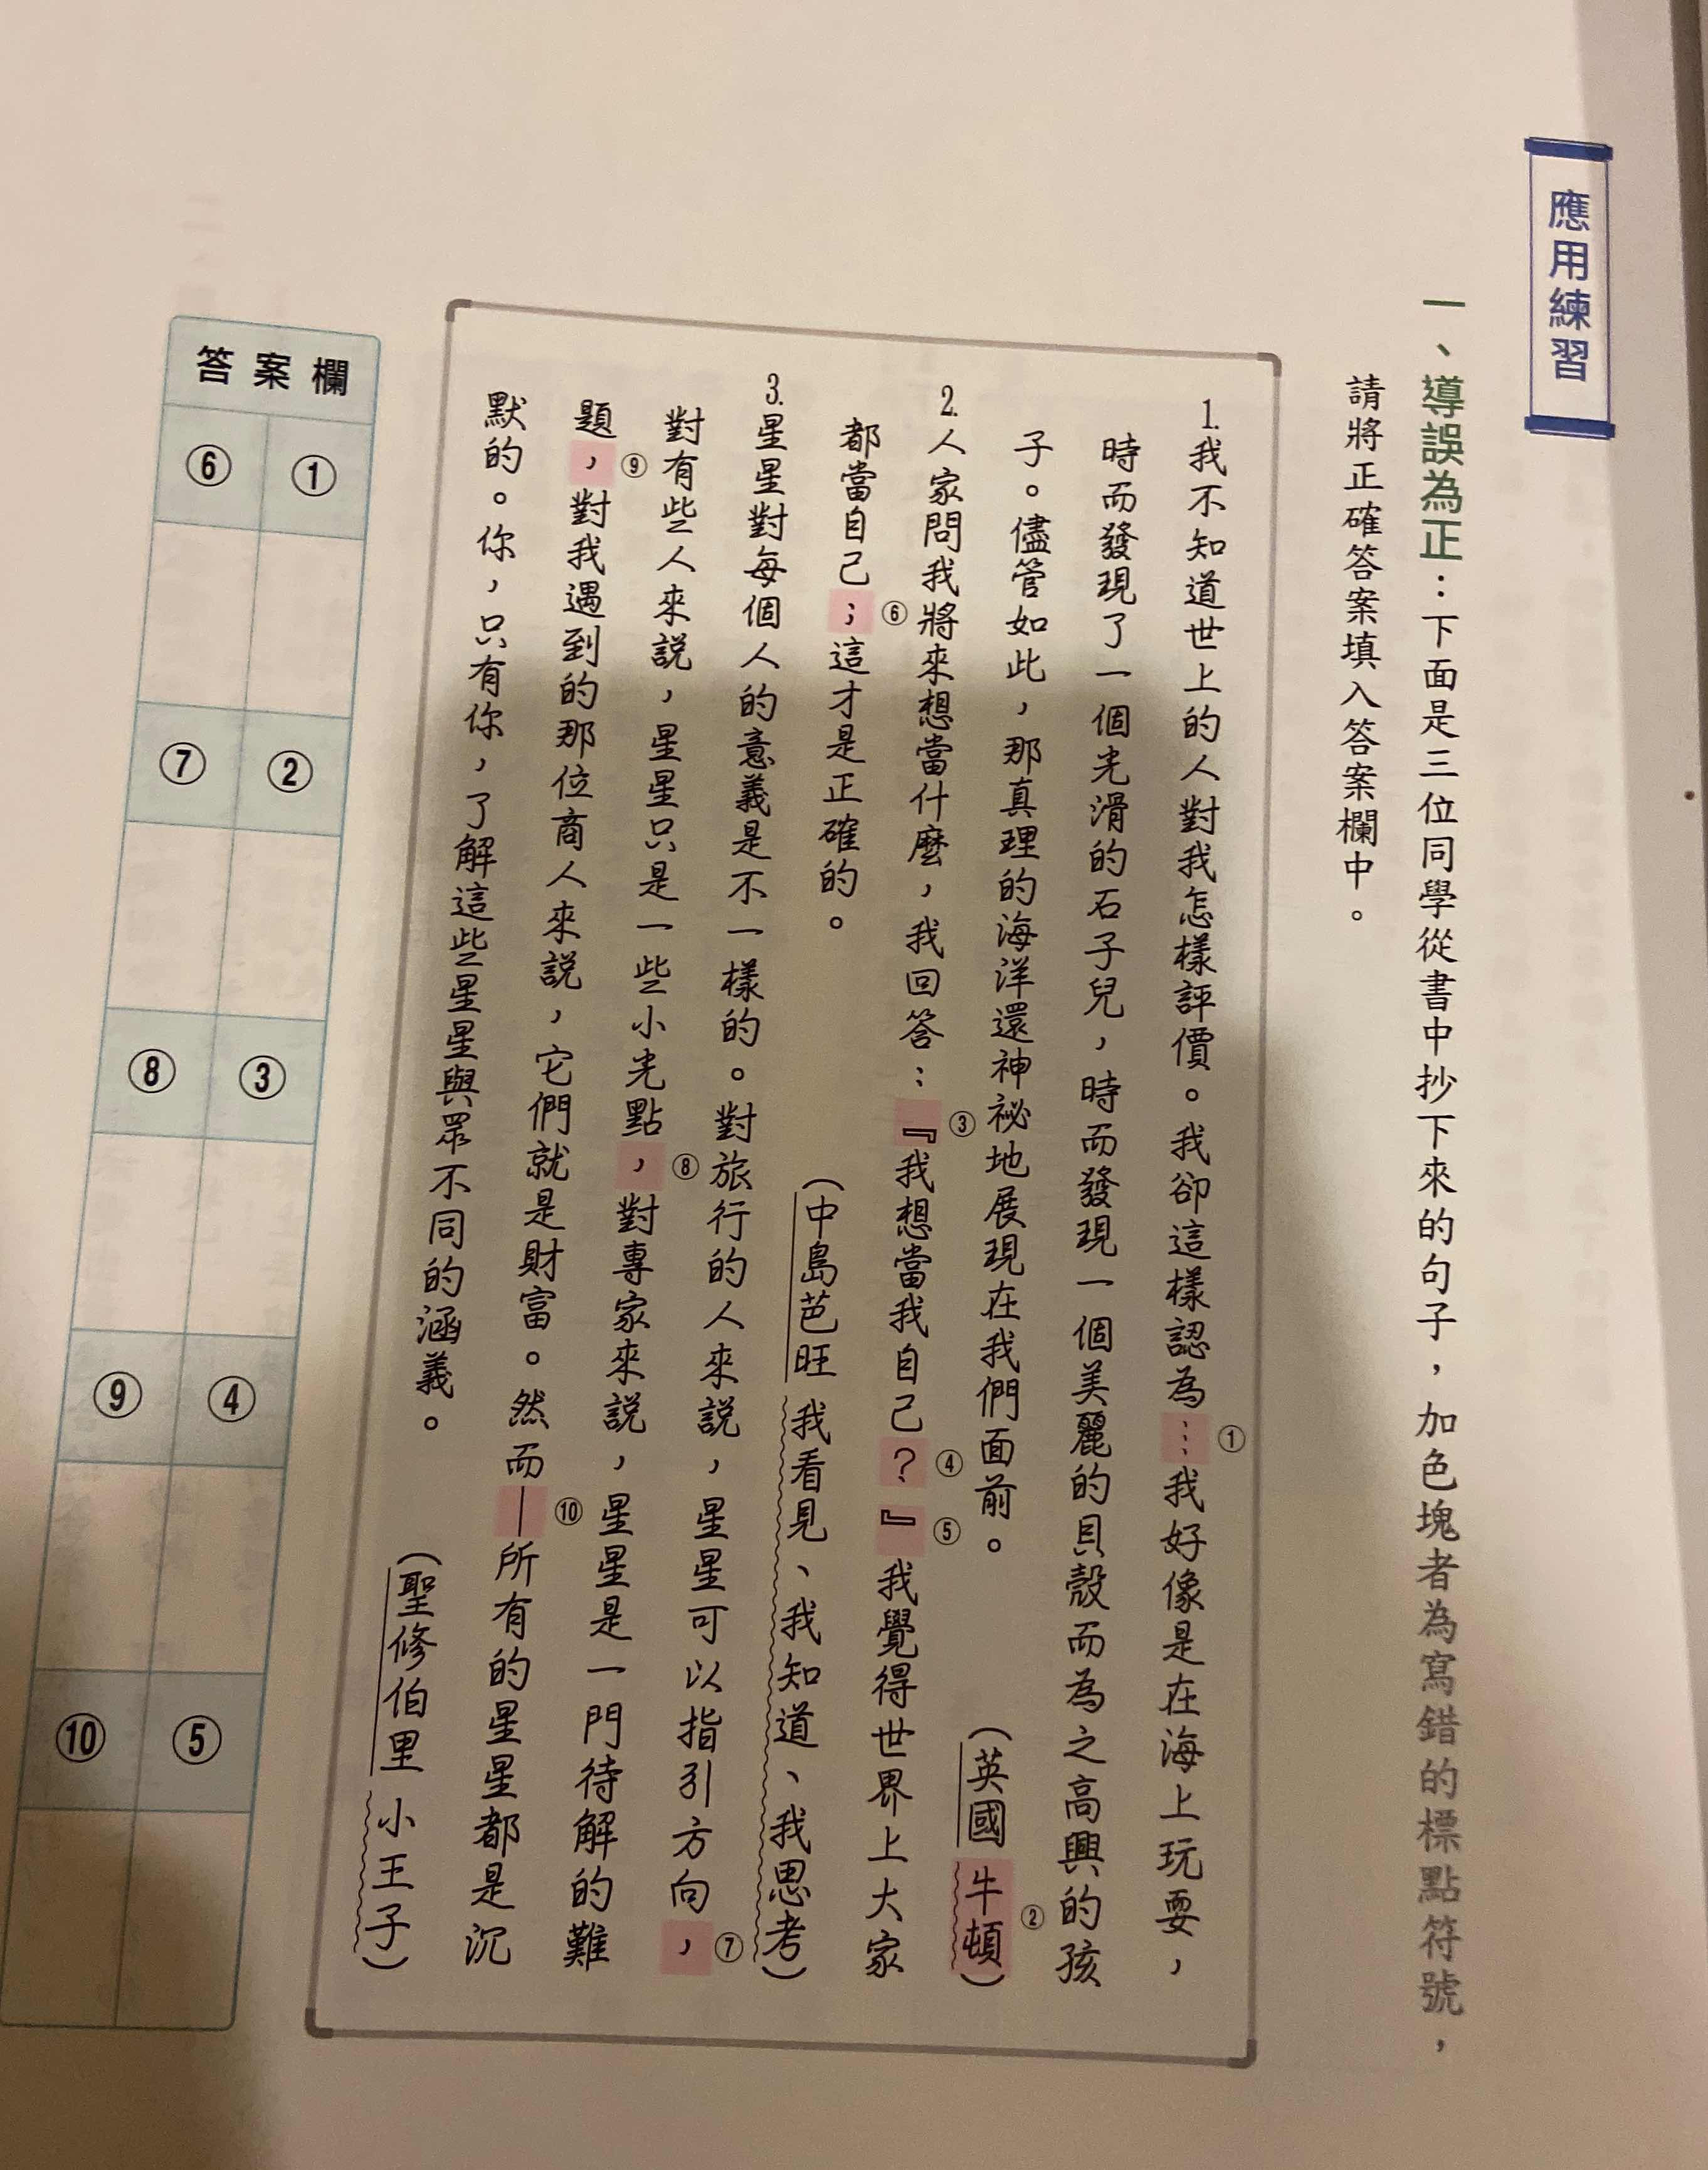 應用練習
一、導誤為正：下面是三位同學從書中抄下來的句子，加色塊者為寫錯的標點符號，
請將正確答案填入答案欄中。
1.我不知道世上的人對我怎樣評價。我卻這樣認為①…我好像是在海上玩耍，
時而發現了一個光滑的石子兒，時而發現一個美麗的貝殼而為之高興的孩
子。儘管如此，那真理的海洋還神祕地展現在我們面前。（英國②牛頓）
2.人家問我將來想當什麼，我回答：③『我想當我自己④？⑤』我覺得世界上大家
都當自己⑥；這才是正確的。（中島芭旺 我看見、我知道、我思考）
3.星星對每個人的意義是不一樣的。對旅行的人來說，星星可以指引方向⑦，
對有些人來說，星星只是一些小光點⑧，對專家來說，星星是一門待解的難
題⑨，對我遇到的那位商人來說，它們就是財富。然而⑩—所有的星星都是沉
默的。你，只有你，了解這些星星與眾不同的涵義。（聖修伯里 小王子）
答案欄
① ② ③ ④ ⑤
⑥ ⑦ ⑧ ⑨ ⑩